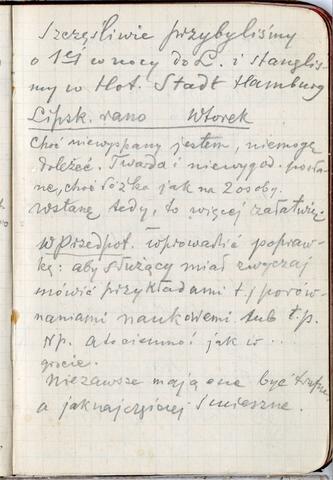 Szczęśliwie przybyliśmy
o 1ej w nocy do L. i stanęliś-
my w Hot. Stadt Hamburg
Lipsk. rano Wtorek
Choć niewyspany jestem, niemogę
doleżeć. Twarda i niewygod. posła-
nie, choć łóżko jak na 2 osoby.
Wstanę tedy, to więcej załatwię.
W Przedpoł. wprowadzić popraw-
kę: aby służący miał zwyczaj
mówić przykładami t.j. porów-
naniami naukowemi lub t.p.
Np. A to ciemno! jak w . . .
grocie.
Niezawsze mają one być trafne
a jaknajczęściej śmieszne.